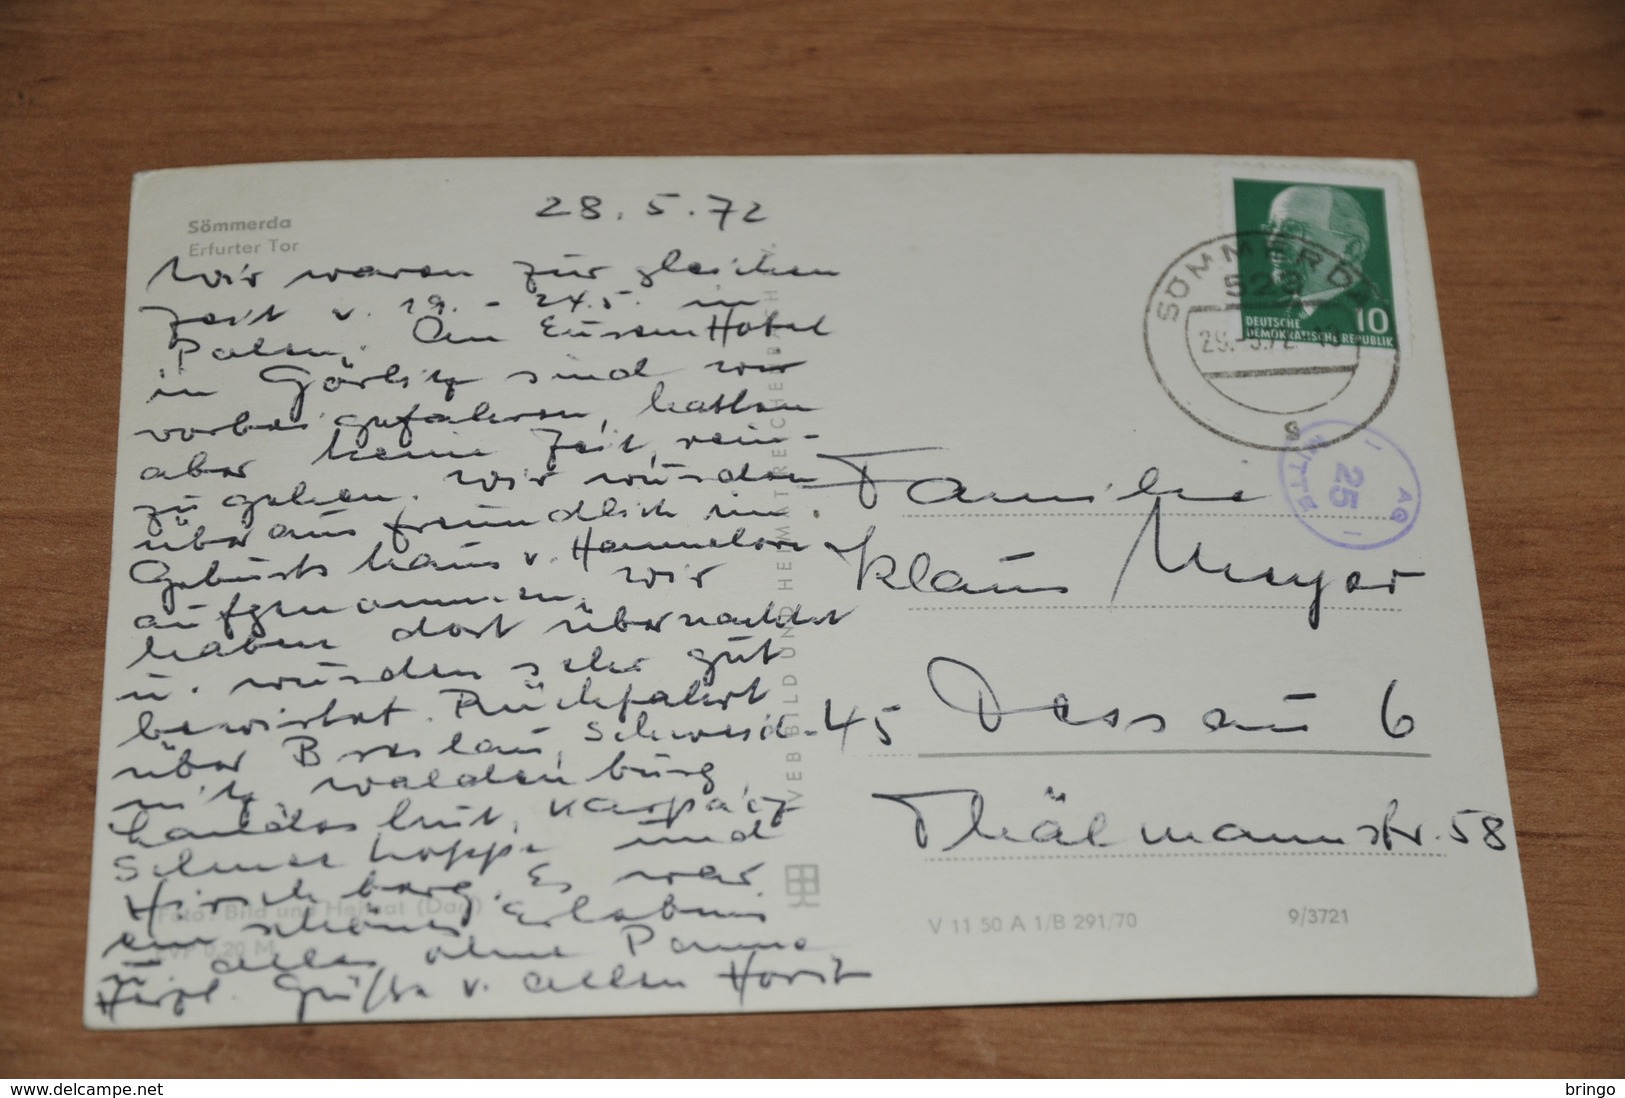 Sömmerda
Erfurter Tor
28.5.72
Wir waren zur gleichen
Zeit v. 19. - 24.5. in
Polen. Am Hotel
in Görlitz sind wir
vorbei gefahren, hatten
aber keine Zeit, rein-
zugehen. Wir wurden
überaus freundlich im
Geburtshaus v. Hannelore
aufgenommen, wir
haben dort übernachtet
u. wurden sehr gut
bewirtet. Rückfahrt
über Breslau, Schweid-
nitz, Waldenburg,
Landeshut, Karpacz
Schneekoppe und
Hirschberg. Es war
ein schönes Erlebnis
alles ohne Panne
Herzl. Grüße v. allen Horst
Foto: Bild und Heimat (Darr)
EVP 0,20 M
VEB BILD UND HEIMAT REICHENBACH I. V.
DEUTSCHE
DEMOKRATISCHE REPUBLIK
10
SÖMMERDA
523
29.-5.72
s
AG
MITTE
25
Familie
Klaus Meyer
45 Dessau 6
Thälmannstr. 58
V 11 50 A 1/B 291/70
9/3721
www.delcampe.net
bringo